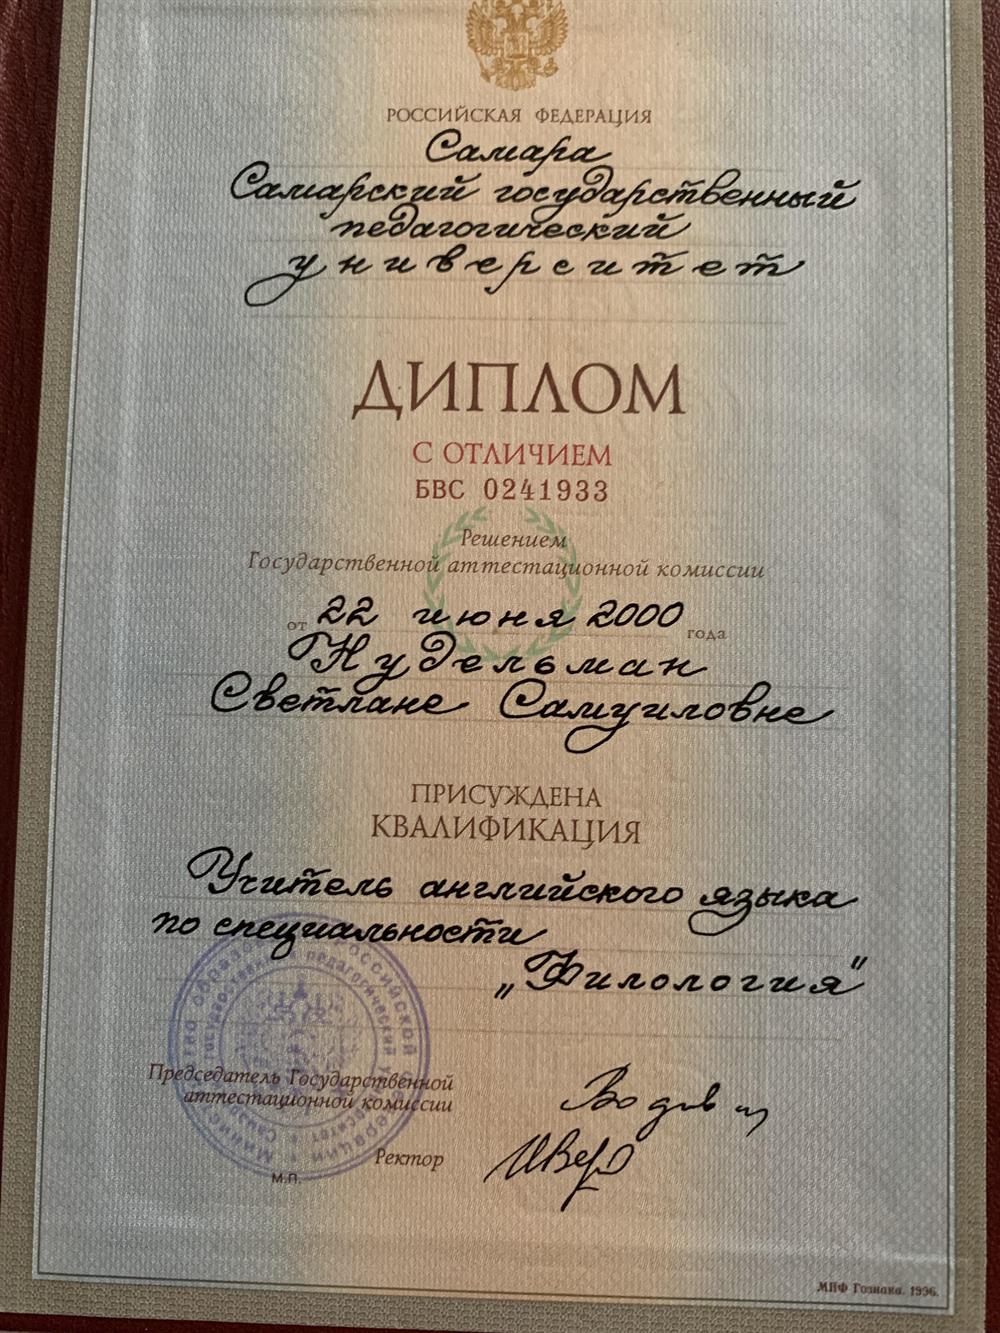 РОССИЙСКАЯ ФЕДЕРАЦИЯ
Самара
Самарский государственный
педагогический
университет
ДИПЛОМ
С ОТЛИЧИЕМ
БВС 0241933
Решением
Государственной аттестационной комиссии
от 22 июня 2000 года
Нудельман
Светлане Самуиловне
ПРИСУЖДЕНА
КВАЛИФИКАЦИЯ
Учитель английского языка
по специальности
„Филология"
Председатель Государственной
аттестационной комиссии
Ректор
М.П.
МПФ Гознака. 1996.